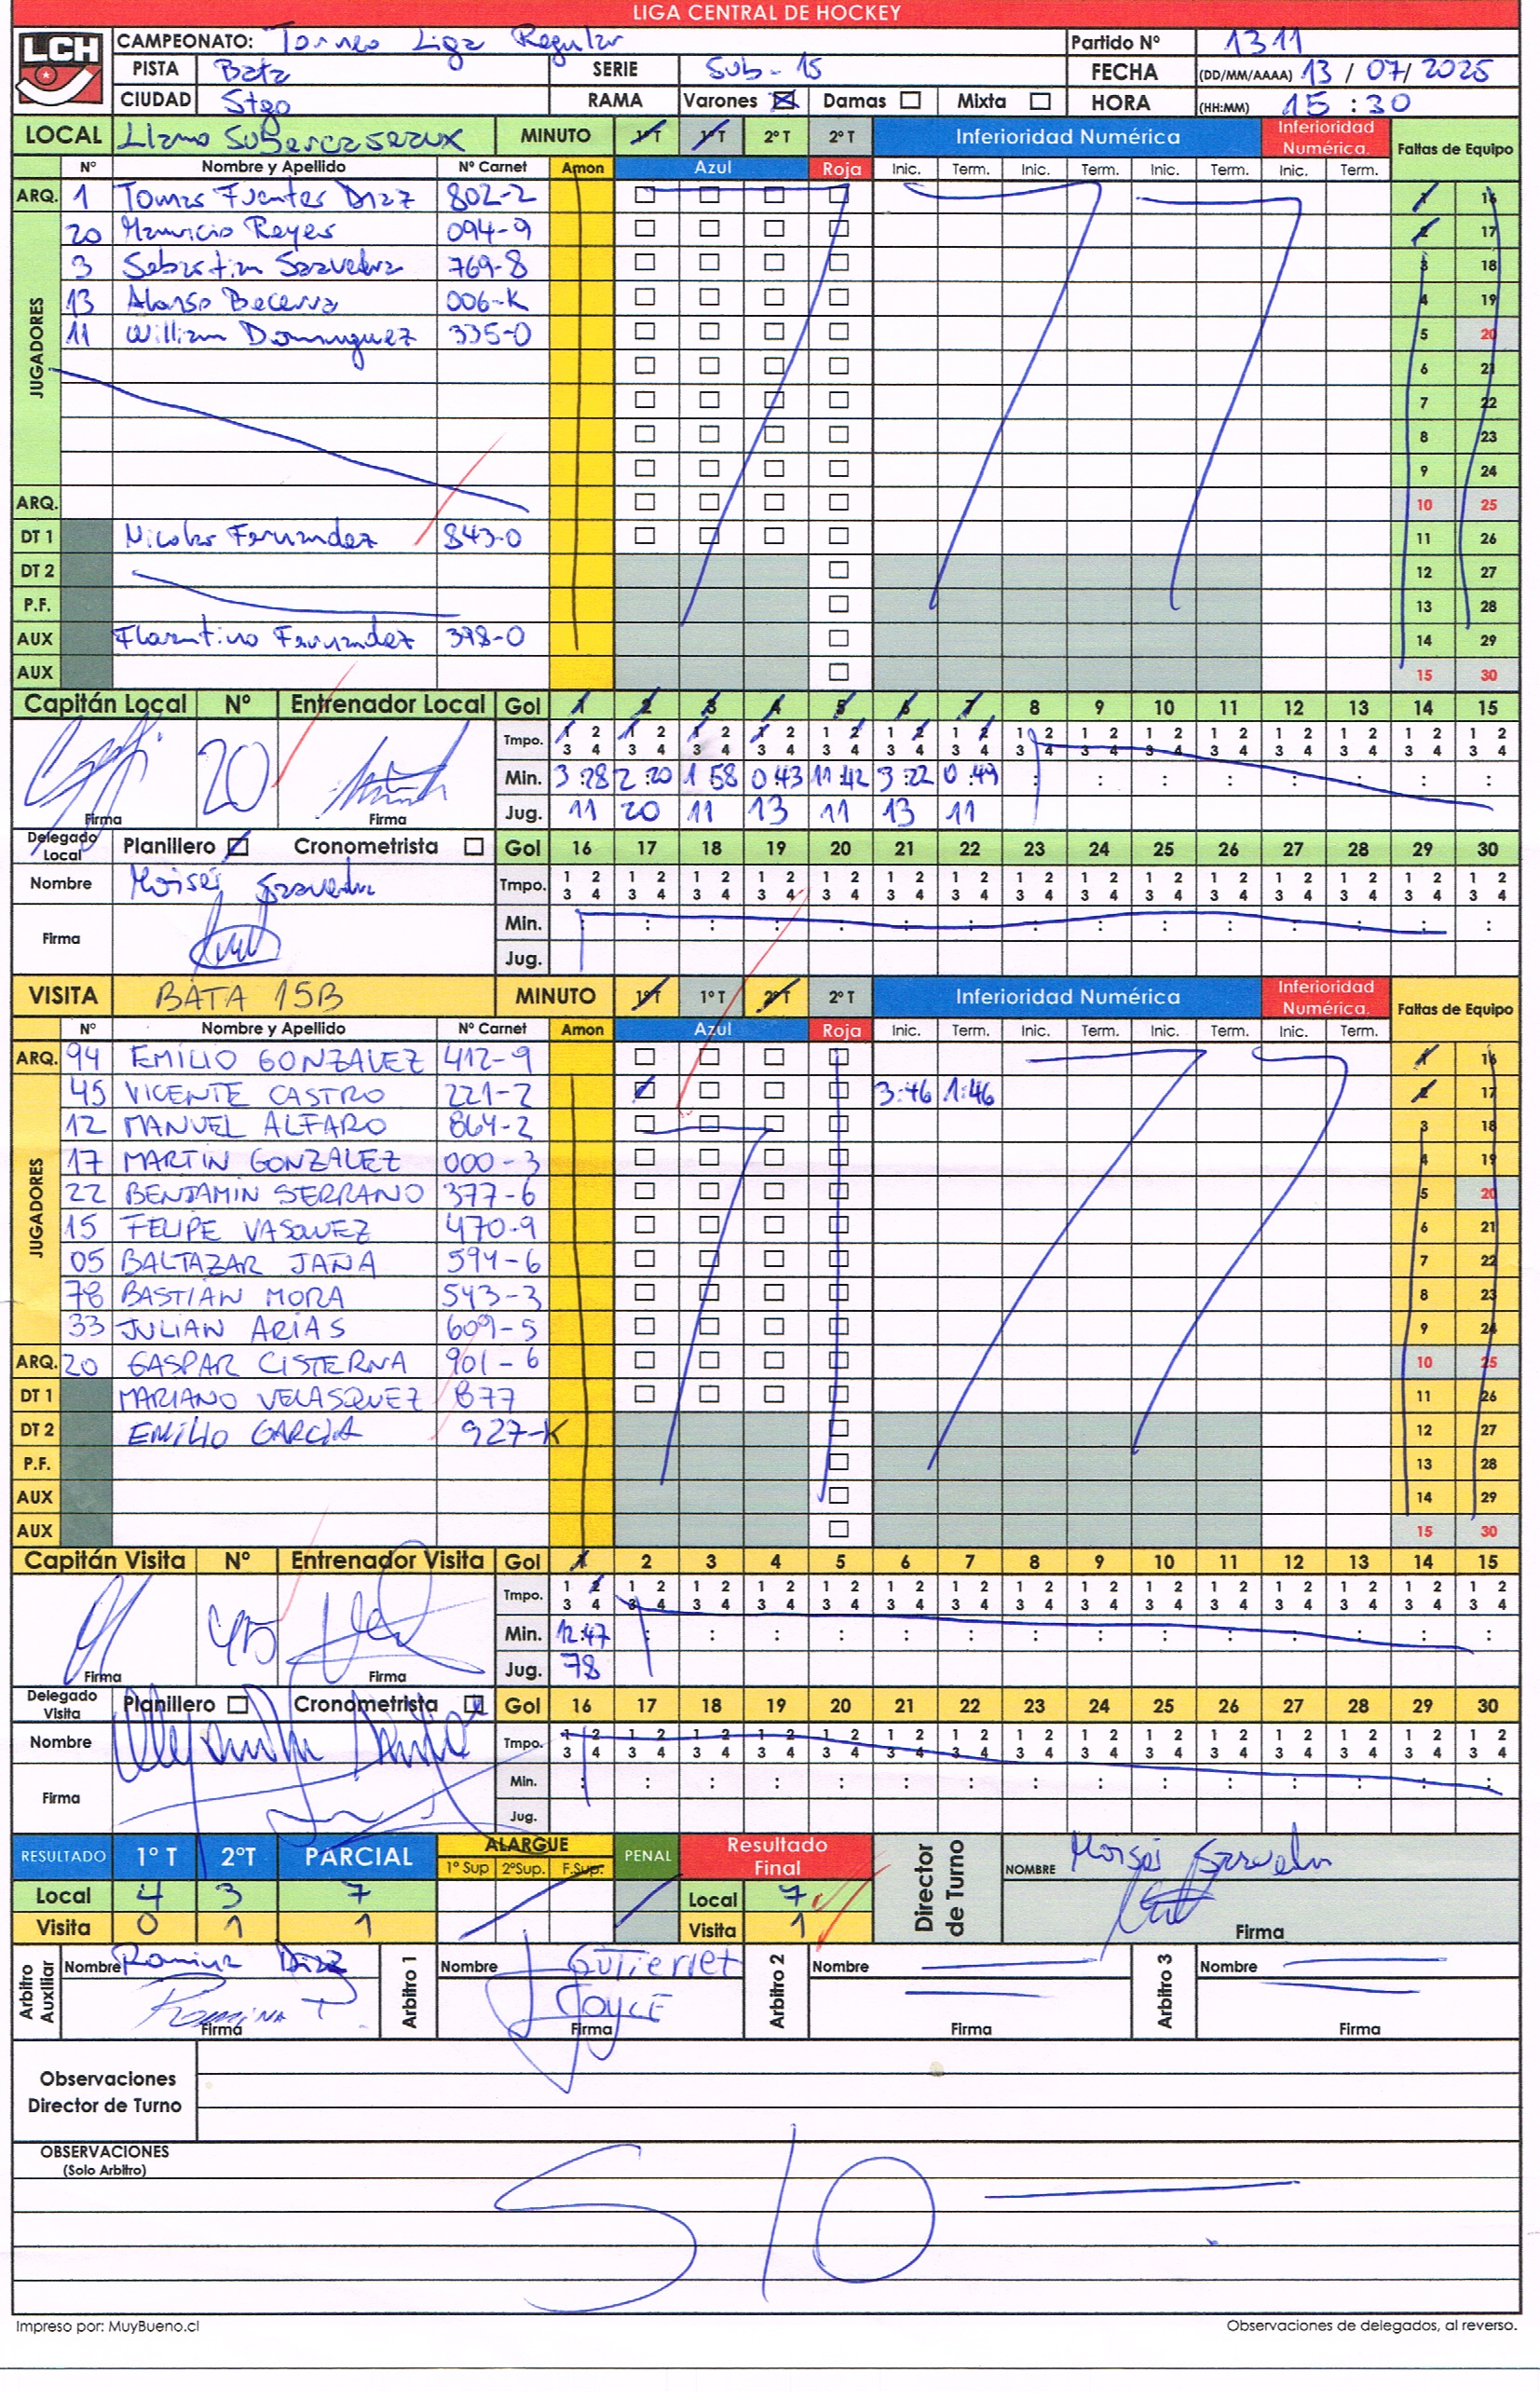 LIGA CENTRAL DE HOCKEY
LCH
CAMPEONATO: Torneo Liga Regular Partido Nº 1311
PISTA Bata SERIE Sub-15 FECHA (DD/MM/AAAA) 13 / 07 / 2025
CIUDAD Stgo RAMA Varones Damas Mixta HORA (HH:MM) 15 : 30
LOCAL Llano Subercaseaux MINUTO 1º T 1º T 2º T 2º T Inferioridad Numérica Inferioridad Numérica. Faltas de Equipo
Nº Nombre y Apellido Nº Carnet Amon Azul Roja Inic. Term. Inic. Term. Inic. Term. Inic. Term.
ARQ. 1 Tomas Fuentes Diaz 802-2 1 16
JUGADORES
20 Mauricio Reyes 094-9 2 17
3 Sebastian Saavedra 769-8 3 18
13 Alonso Becerra 006-K 4 19
11 William Dominguez 335-0 5 20
6 21
7 22
8 23
9 24
ARQ. 10 25
DT 1 Nicolas Fernandez 843-0 11 26
DT 2 12 27
P.F. 13 28
AUX Florentino Fernandez 398-0 14 29
AUX 15 30
Capitán Local Nº Entrenador Local Gol 1 2 3 4 5 6 7 8 9 10 11 12 13 14 15
Tmpo. 1 2 1 2 1 2 1 2 1 2 1 2 1 2 1 2 1 2 1 2 1 2 1 2 1 2 1 2 1 2
3 4 3 4 3 4 3 4 3 4 3 4 3 4 3 4 3 4 3 4 3 4 3 4 3 4 3 4 3 4
20 Min. 3:28 2:20 1:58 0:43 11:42 3:22 0:49 : : : : : : : :
Firma Firma Jug. 11 20 11 13 11 13 11
Delegado Local Planillero Cronometrista Gol 16 17 18 19 20 21 22 23 24 25 26 27 28 29 30
Nombre Moises Saavedra Tmpo. 1 2 1 2 1 2 1 2 1 2 1 2 1 2 1 2 1 2 1 2 1 2 1 2 1 2 1 2 1 2
3 4 3 4 3 4 3 4 3 4 3 4 3 4 3 4 3 4 3 4 3 4 3 4 3 4 3 4 3 4
Firma Min. : : : : : : : : : : : : : : :
Jug.
VISITA BATA 15B MINUTO 1º T 1º T 2º T 2º T Inferioridad Numérica Inferioridad Numérica. Faltas de Equipo
Nº Nombre y Apellido Nº Carnet Amon Azul Roja Inic. Term. Inic. Term. Inic. Term. Inic. Term.
ARQ. 94 EMILIO GONZALEZ 412-9 1 16
JUGADORES
45 VICENTE CASTRO 221-2 3:46 1:46 2 17
12 MANUEL ALFARO 864-2 3 18
17 MARTIN GONZALEZ 000-3 4 19
22 BENJAMIN SERRANO 377-6 5 20
15 FELIPE VASQUEZ 470-9 6 21
05 BALTAZAR JAÑA 594-6 7 22
78 BASTIÁN MORA 543-3 8 23
33 JULIAN ARIAS 609-5 9 24
ARQ. 20 GASPAR CISTERNA 901-6 10 25
DT 1 MARIANO VELASQUEZ 877 11 26
DT 2 EMILIO GARCIA 927-K 12 27
P.F. 13 28
AUX 14 29
AUX 15 30
Capitán Visita Nº Entrenador Visita Gol 1 2 3 4 5 6 7 8 9 10 11 12 13 14 15
Tmpo. 1 2 1 2 1 2 1 2 1 2 1 2 1 2 1 2 1 2 1 2 1 2 1 2 1 2 1 2 1 2
3 4 3 4 3 4 3 4 3 4 3 4 3 4 3 4 3 4 3 4 3 4 3 4 3 4 3 4 3 4
45 Min. 12:47 : : : : : : : : : : : : : :
Firma Firma Jug. 78
Delegado Visita Planillero Cronometrista Gol 16 17 18 19 20 21 22 23 24 25 26 27 28 29 30
Nombre Tmpo. 1 2 1 2 1 2 1 2 1 2 1 2 1 2 1 2 1 2 1 2 1 2 1 2 1 2 1 2 1 2
3 4 3 4 3 4 3 4 3 4 3 4 3 4 3 4 3 4 3 4 3 4 3 4 3 4 3 4 3 4
Firma Min. : : : : : : : : : : : : : : :
Jug.
RESULTADO 1º T 2ºT PARCIAL ALARGUE 1º Sup 2ºSup. F.Sup. PENAL Resultado Final Director de Turno NOMBRE Moises Saavedra
Local 4 3 7 Local 7
Visita 0 1 1 Visita 1 Firma
Arbitro Auxiliar Nombre Romina Diaz Arbitro 1 Nombre Gutierrez Arbitro 2 Nombre Arbitro 3 Nombre
Romina Joyce
Firma Firma Firma Firma
Observaciones Director de Turno
OBSERVACIONES (Solo Arbitro)
S/O
Impreso por: MuyBueno.cl Observaciones de delegados, al reverso.